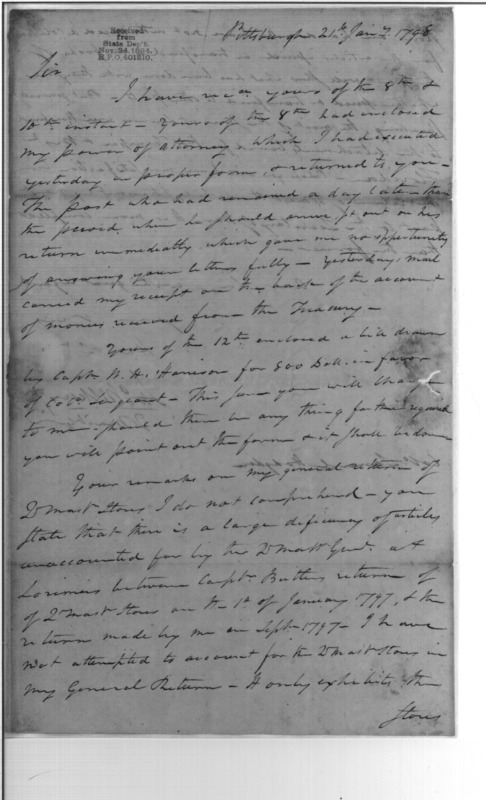 Received
from
State Dep't.
Nov. 24, 1894.
R.P.O. 401210.
Pittsburgh 21st Jany 1798
Sir
I have recd yours of the 8th &
10th instant - Yours of the 8th had enclosed
my power of attorney which I had executed
yesterday in proper form, & returned to you -
The Post who had remained a day later than
the period, when he should arrive, set out on his
return immediatly which gave me no opportunity
of answering your letters fully - Yesterdays mail
carried my receipt on the back of the account
of monies received from the Treasury -
Yours of the 12th enclosed a bill drawn
by Capt. W. H. Harrison for 800 Doll. in favor
of Colo. Sargeant - This sum you will charge
to me should there be any thing farther required
you will point out the form & it shall be done
Your remarks on my general return of
Qr Mast Stores I do not comprehend - you
state that there is a large deficiency of articles
unaccounted for by the Qr Mast Genl. at
Lorimies between Capt. Butlers return of
of Qr Mast Stores on the 1st of January 1797, & the
return made by me in Sept. 1797 - I have
not attempted to account for the Qr Mast Stores in
my General Return - It only exhibits the
Stores